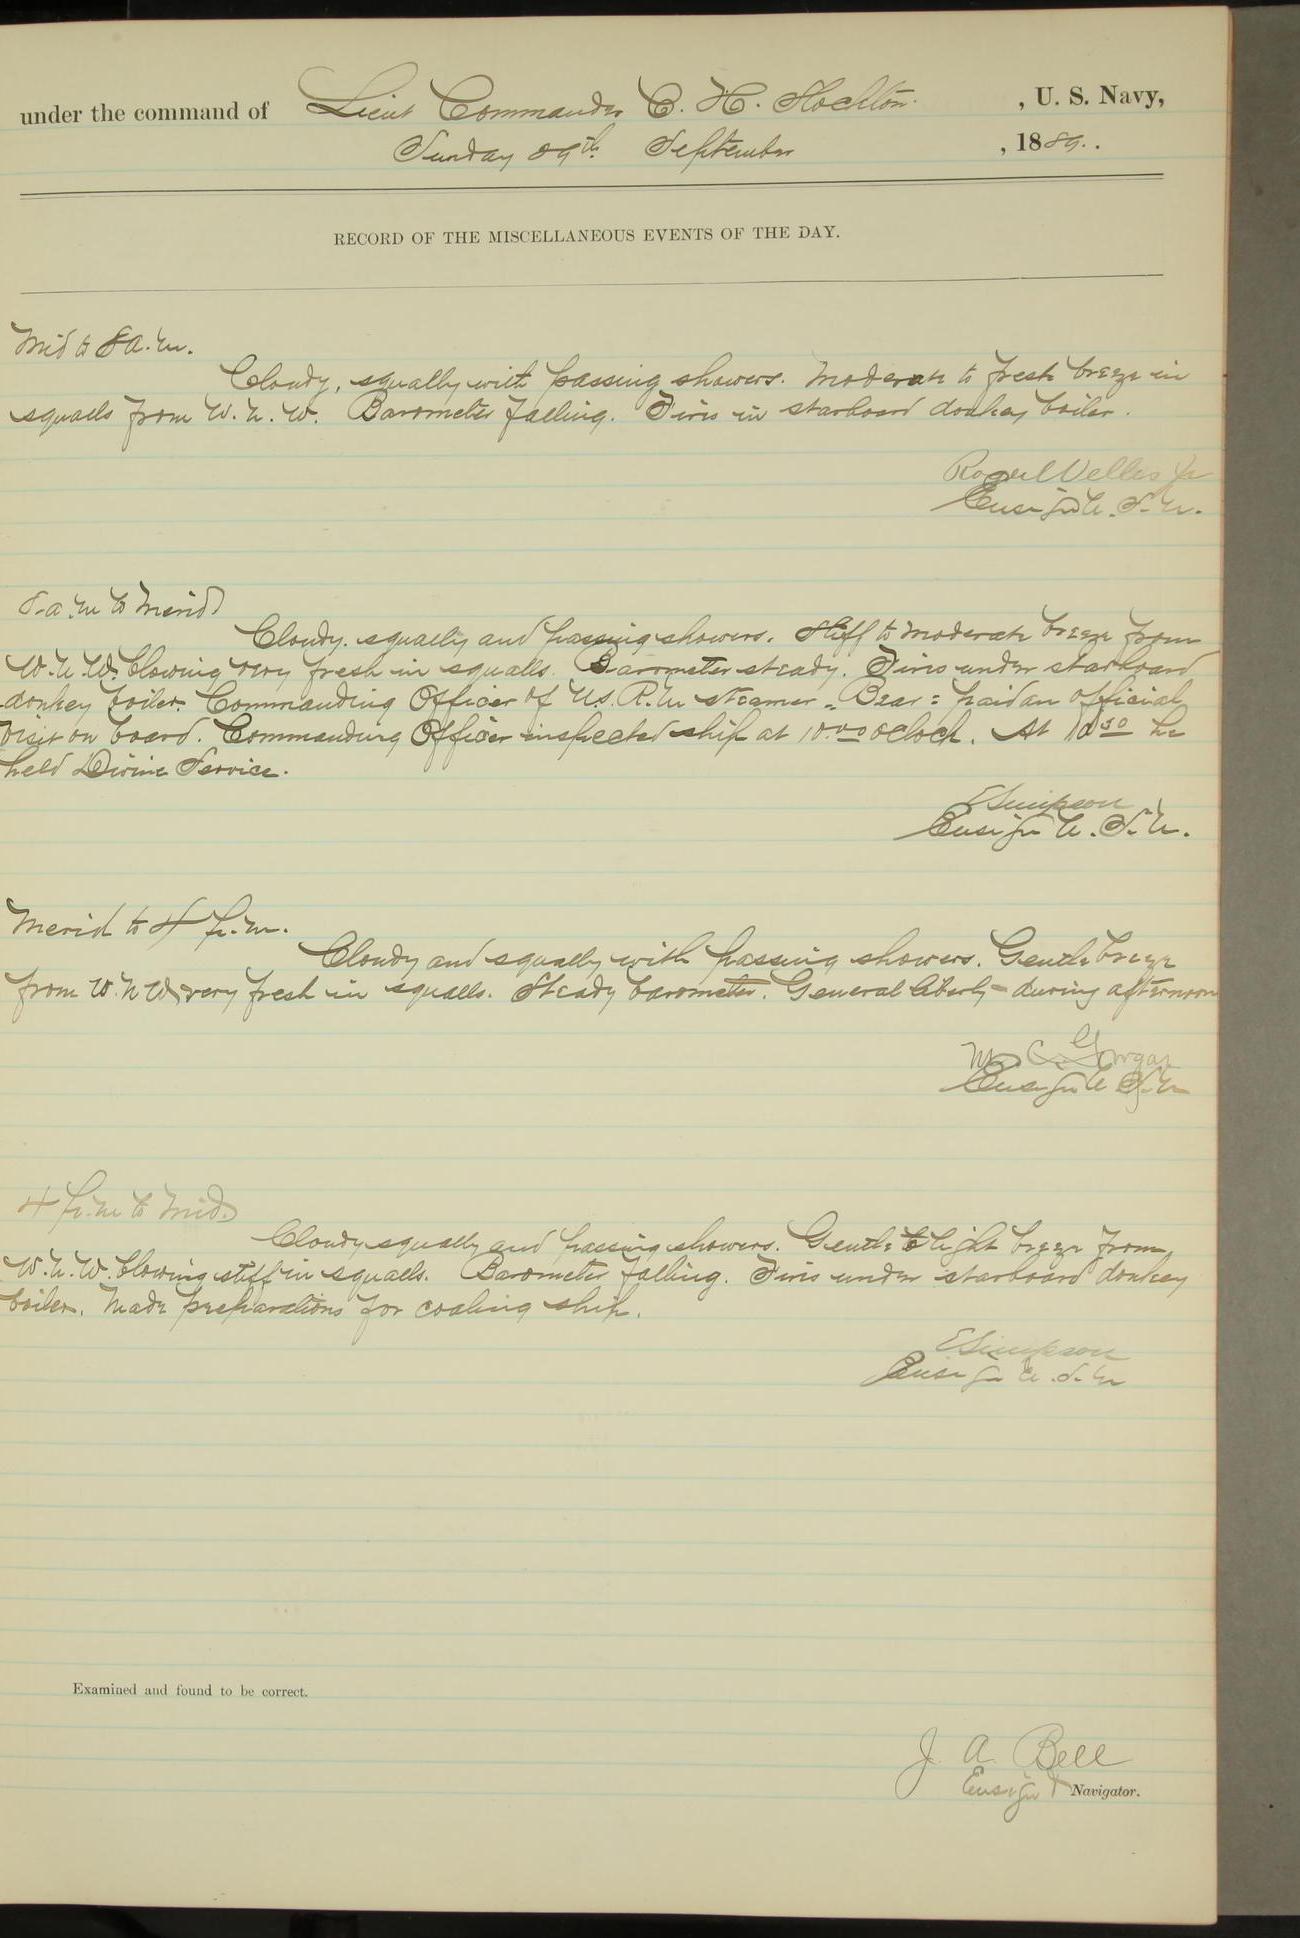 under the command of Lieut Commander C. H. Stockton. , U. S. Navy,
Sunday 29th September , 1889.
RECORD OF THE MISCELLANEOUS EVENTS OF THE DAY.
Mid to 8 a.m.
Cloudy, squally with passing showers. Moderate to fresh breeze in
squalls from W. N. W. Barometer falling. Fires in starboard donkey boiler.
Roger Welles Jr
Ensign U. S. N.
8 a.m to Merid
Cloudy. squally and passing showers. Stiff to moderate breeze from
W. N. W. blowing very fresh in squalls. Barometer steady. Fires under starboard
donkey boiler. Commanding Officer of U.S. R.M steamer "Bear" paid an official
visit on board. Commanding Officer inspected ship at 10.00 oclock. At 10 30 he
held Divine Service.
E Simpson
Ensign U. S. N.
Merid to 4 p.m.
Cloudy and squally with passing showers. Gentle breeze
from W. N W, very fresh in squalls. Steady barometer. General liberty during afternoon
Ensign U S. N
4 p.m to Mid.
Cloudy squally and passing showers. Gentle to light breeze from
W. N. W. blowing stiff in squalls. Barometer falling. Fires under starboard donkey
boiler. Made preparations for coaling ship.
E Simpson
Ensign U. S. N
Examined and found to be correct.
J. A Bell
Ensign & Navigator.